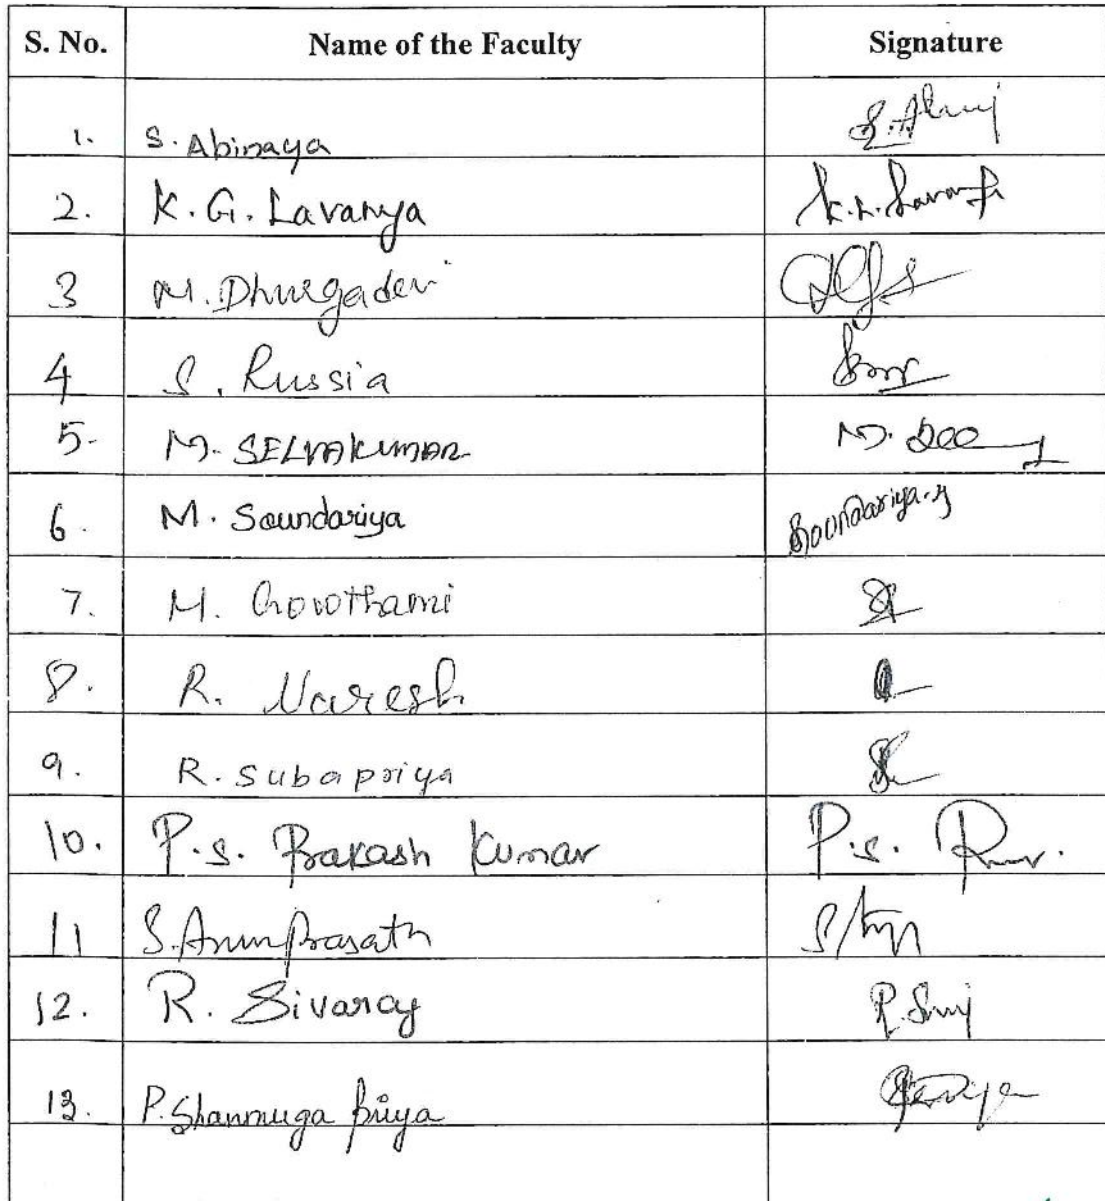 S. No. Name of the Faculty Signature
1. S. Abinaya
2. K. G. Lavanya K.G. Lavanya
3 M. Dhurgadevi
4 S. Russia
5. M. SELVAKUMAR
6. M. Soundariya Soundariya.M
7. M. Gowthami
8. R. Naresh
9. R. Subapriya
10. P.S. Prakash Kumar P.S.
11 S. Arunprasath
12. R. Sivaraj
13. P. Shanmuga priya